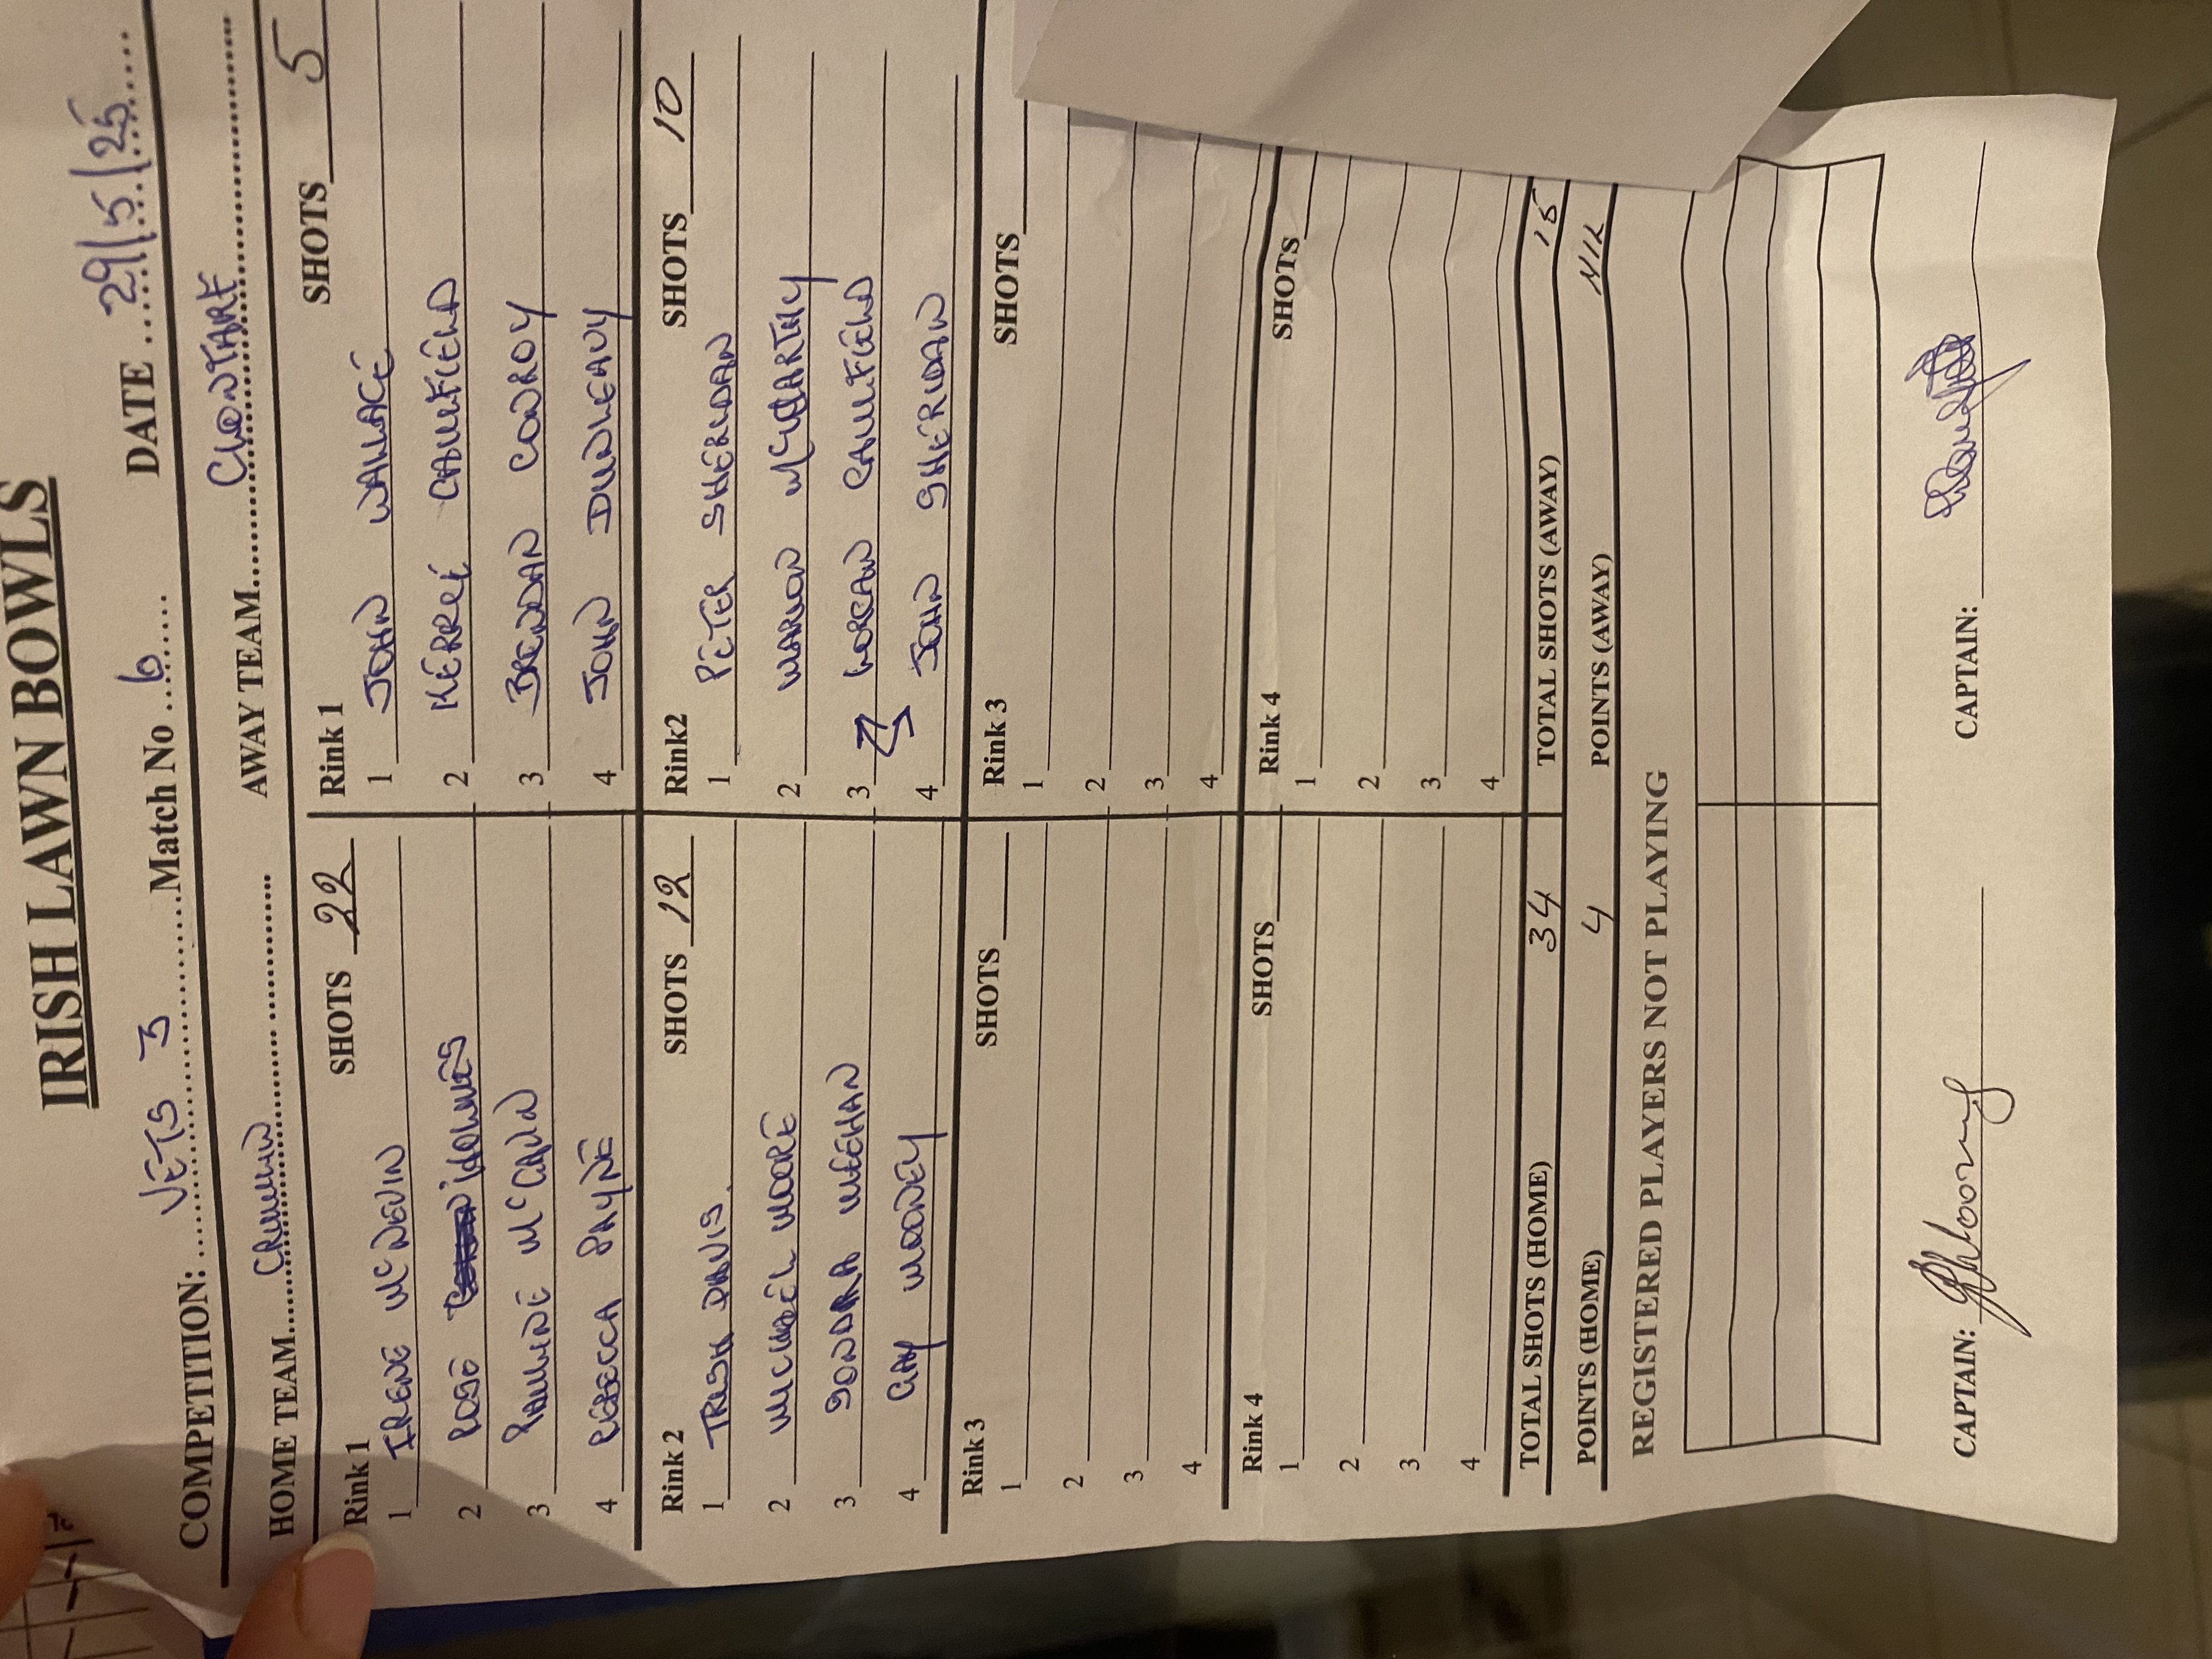 IRISH LAWN BOWLS
COMPETITION: VETS 3 Match No 6 DATE 29/5/25
HOME TEAM CRUMLIN AWAY TEAM CLONTARF
Rink 1 SHOTS 22 Rink 1 SHOTS 5
1 IRENE McNEVIN 1 JOHN WALLACE
2 ROSE HOLMES 2 MERRLÉ CAULFIELD
3 PAULINE McCANN 3 BRENDAN CONROY
4 REBECCA PAYNE 4 JOHN DUNLEAVY
Rink 2 SHOTS 12 Rink2 SHOTS 10
1 TRISH DAVIS. 1 PETER SHERIDAN
2 MICHAEL MOORE 2 MARION McCARTHY
3 SONDRA MEEHAN 3 LORCAN CAULFIELD
4 GAY MOONEY 4 JOHN SHERIDAN
Rink 3 SHOTS Rink 3 SHOTS
1 1
2 2
3 3
4 4
Rink 4 SHOTS Rink 4 SHOTS
1 1
2 2
3 3
4 4
TOTAL SHOTS (HOME) 34 TOTAL SHOTS (AWAY) 15
POINTS (HOME) 4 POINTS (AWAY) NIL
REGISTERED PLAYERS NOT PLAYING
CAPTAIN: CAPTAIN: